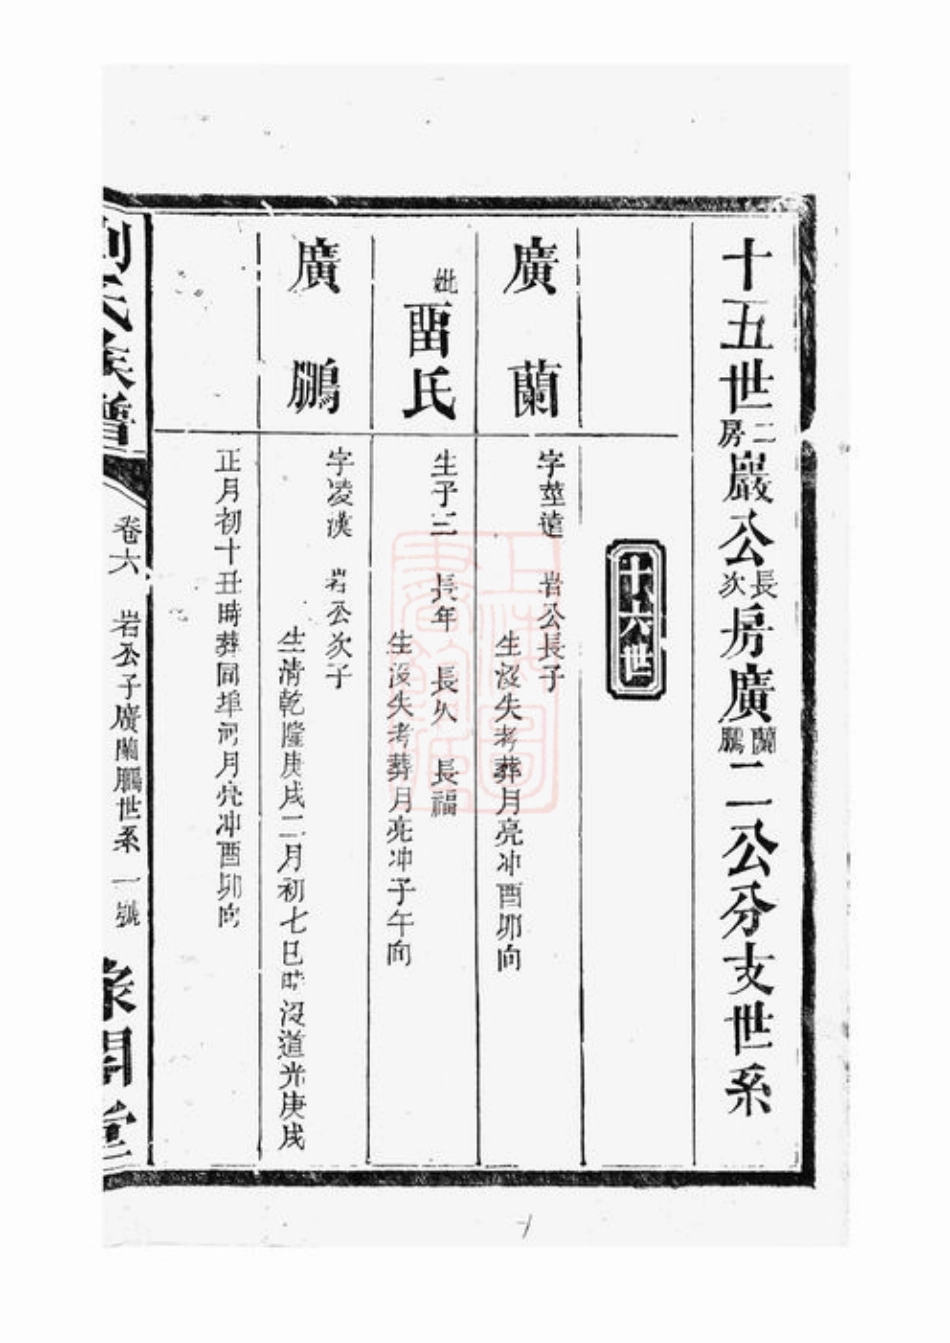 十五世二房巖公長次房廣蘭鵬二公分支世系
十六世
廣蘭
字莖遠 岩公長子
生沒失考葬月亮冲酉卯向
妣
畱氏
生子三 長年 長久 長福
生沒失考葬月亮冲子午向
廣鵬
字凌漢 岩公次子
生清乾隆庚戌二月初七巳時沒道光庚戌
正月初十丑時葬同埠河月亮冲酉卯向
劉氏族譜
卷六
岩公子廣蘭鵬世系 一號
上海圖書館藏